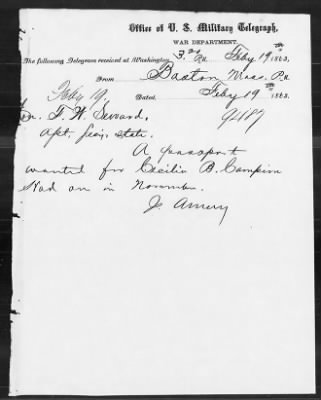 Office of U. S. Military Telegraph,
WAR DEPARTMENT.
The following Telegram received at Washington, 3. PM. Feby 19th 1863,
From Boston Mass.
Feby 19, Dated, Feby 19th 1863.
F. W. Seward.
Asst. Secy. State.
A passport
wanted for Cecilia B. Campion
Had one in November.
J. Amory